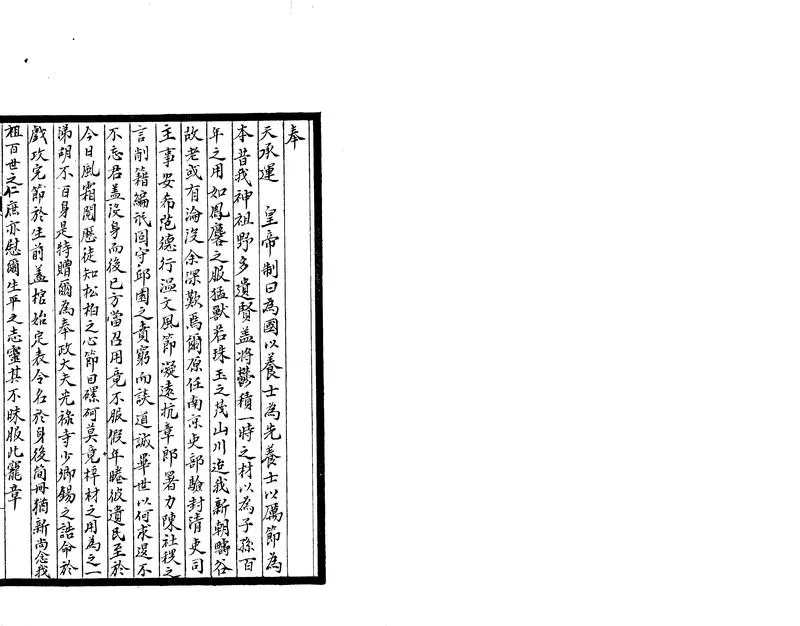 奉
天承運　皇帝　制曰為國以養士為先養士以厲節為
本昔我神祖野多遺賢蓋將鬱積一時之材以為子孫百
年之用如鳳麐之服猛獸若珠玉之茂山川迨我新朝疇咨
故老或有淪沒余深歎焉爾原任南京吏部驗封清吏司
主事安希范德行溫文風節凝遠抗章郎署力陳社稷之
言削籍編氓固守邱園之賁窮而談道誠畢世以何求退不
不忘君蓋沒身而後已方當召用竟不服假年睠彼遺民至於
今日風霜閱歷徒知松柏之心節目磥砢莫竟梓材之用為之一
涕胡不百身是特贈爾為奉政大夫光祿寺少卿錫之誥命於
戲攻完節於生前蓋棺始定表令名於身後簡冊猶新尚念我
祖百世之仁庶亦慰爾生平之志靈其不昧服此寵章